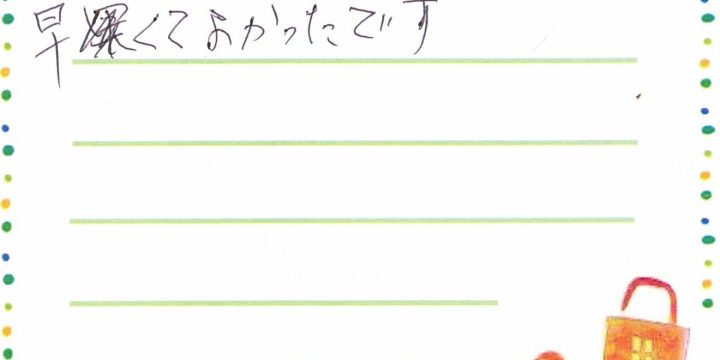 早くてよかったです